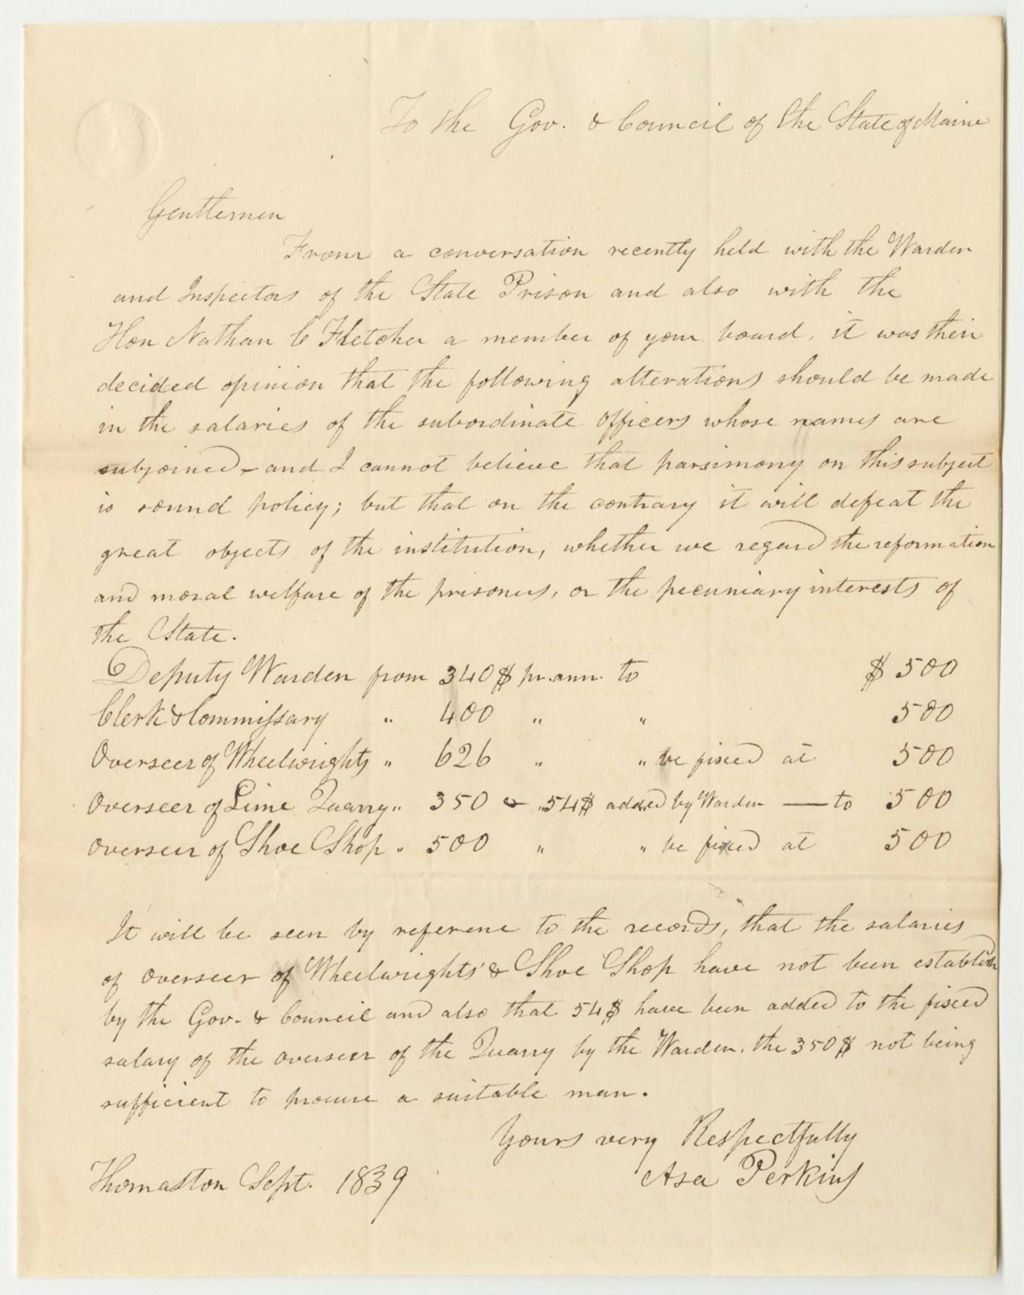 To the Gov. & Council of the State of Maine
Gentlemen
From a conversation recently held with the Warden
and Inspectors of the State Prison and also with the
Hon Nathan C Fletcher a member of your board, it was their
decided opinion that the following alterations should be made
in the salaries of the subordinate officers whose names are
subjoined - and I cannot believe that parsimony on this subject
is sound policy; but that on the contrary it will defeat the
great objects of the institution, whether we regard the reformation
and moral welfare of the prisoners, or the pecuniary interests of
the State.
Deputy Warden from 340$ pr. ann. to $ 500
Clerk & Commissary " 400 " " 500
Overseer of Wheelwrights " 626 " " be fixed at 500
Overseer of Lime Quarry " 350 & " 54$ added by Warden — to 500
Overseer of Shoe Shop " 500 " " be fixed at 500
It will be seen by reference to the records, that the salaries
of overseer of Wheelwrights & Shoe Shop have not been establish
by the Gov. & Council and also that 54$ have been added to the fixed
salary of the overseer of the Quarry by the Warden. the 350$ not being
sufficient to procure a suitable man.
Yours very Respectfully
Thomaston Sept. 1839 Asa Perkins